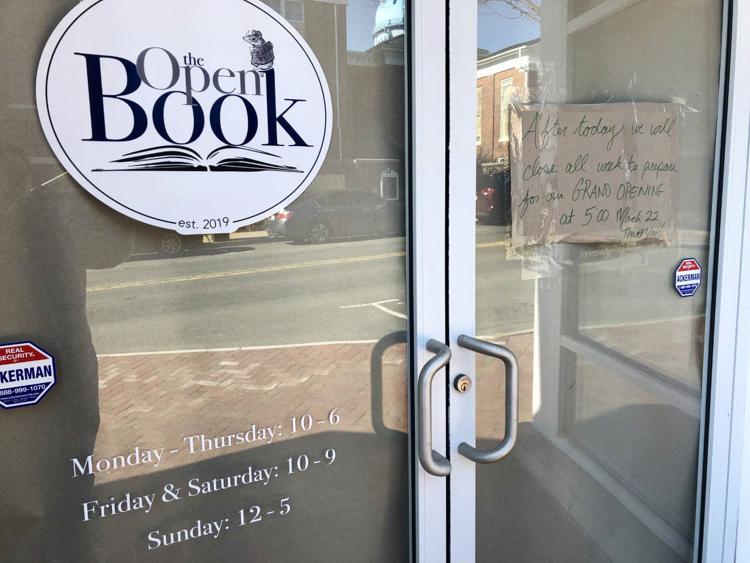 the
Open
Book
est. 2019
After today we will
close all week to prepare
for our GRAND OPENING
at 5:00 March 22
Thank You!
REAL
SECURITY.
ACKERMAN
REAL
SECURITY.
CKERMAN
888-999-1070
Monday - Thursday: 10 - 6
Friday & Saturday: 10 - 9
Sunday: 12 - 5